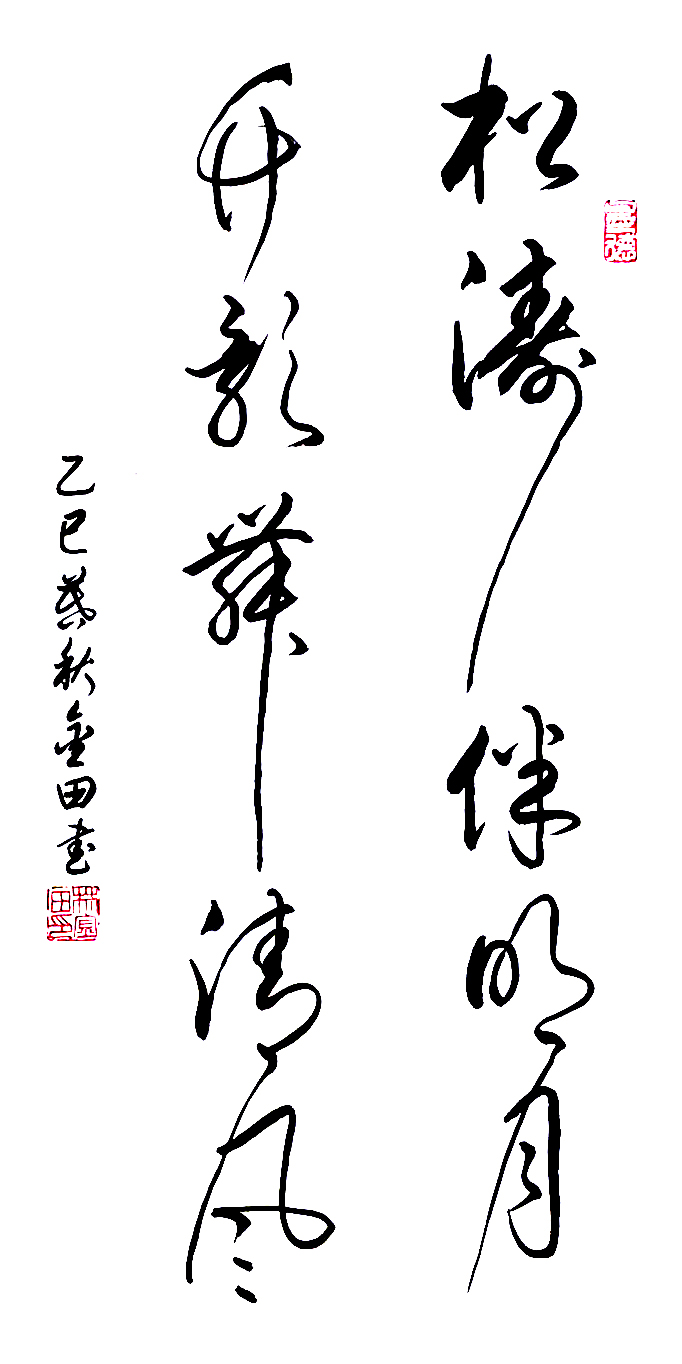 松涛伴明月
竹影舞清风
乙巳暮秋金田书